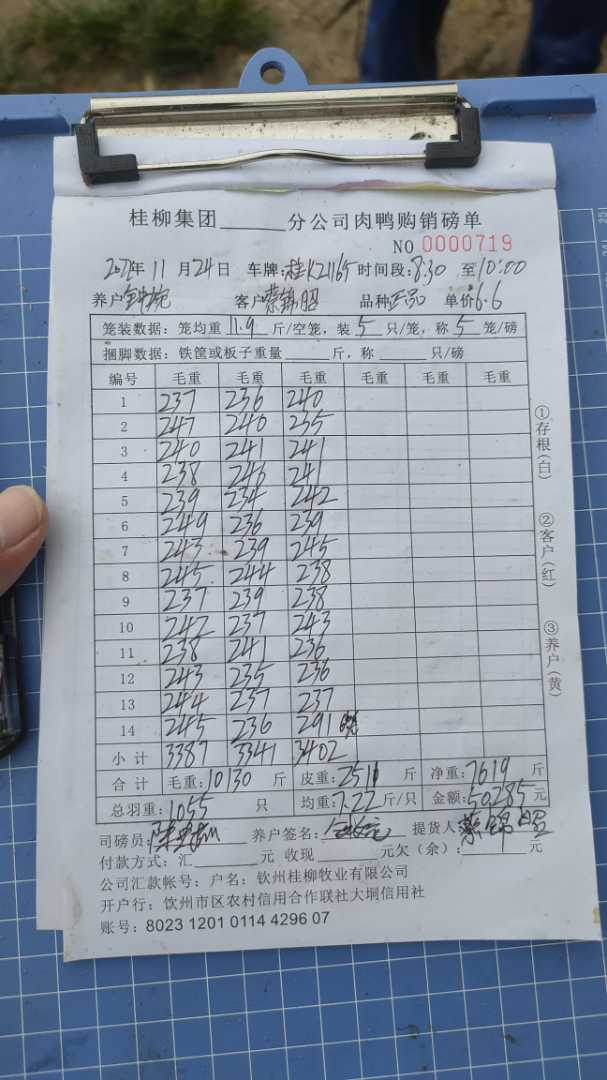 桂柳集团______分公司肉鸭购销磅单
NO 0000719
年 11 月 24 日 车牌:桂K21165 时间段:8:30 至10:00
养户 客户 蔡锦昭 品种 正品 单价 6.6
笼装数据：笼均重 11.9 斤/空笼，装 5 只/笼，称 5 笼/磅
捆脚数据：铁筐或板子重量______斤，称______只/磅
编号 毛重 毛重 毛重 毛重 毛重 毛重
1 237 236 240
2 247 240 235
3 240 241 241
4 238 246 241
5 239 234 242
6 249 236 239
7 243 239 245
8 245 244 238
9 237 239 238
10 242 237 243
11 238 241 236
12 243 235 236
13 244 237 237
14 245 236 291
小计 3387 3341 3402
合计 毛重:10130 斤 皮重:2511 斤 净重:7619 斤
总羽重:1055 只 均重:7.22 斤/只 金额:50285 元
司磅员: 养户签名: 提货人 蔡锦昭
付款方式：汇______元 收现______元欠（余）:______元
公司汇款帐号：户名：钦州桂柳牧业有限公司
开户行：钦州市区农村信用合作联社大垌信用社
账号：8023 1201 0114 4296 07
①存根(白)
②客户(红)
③养户(黄)